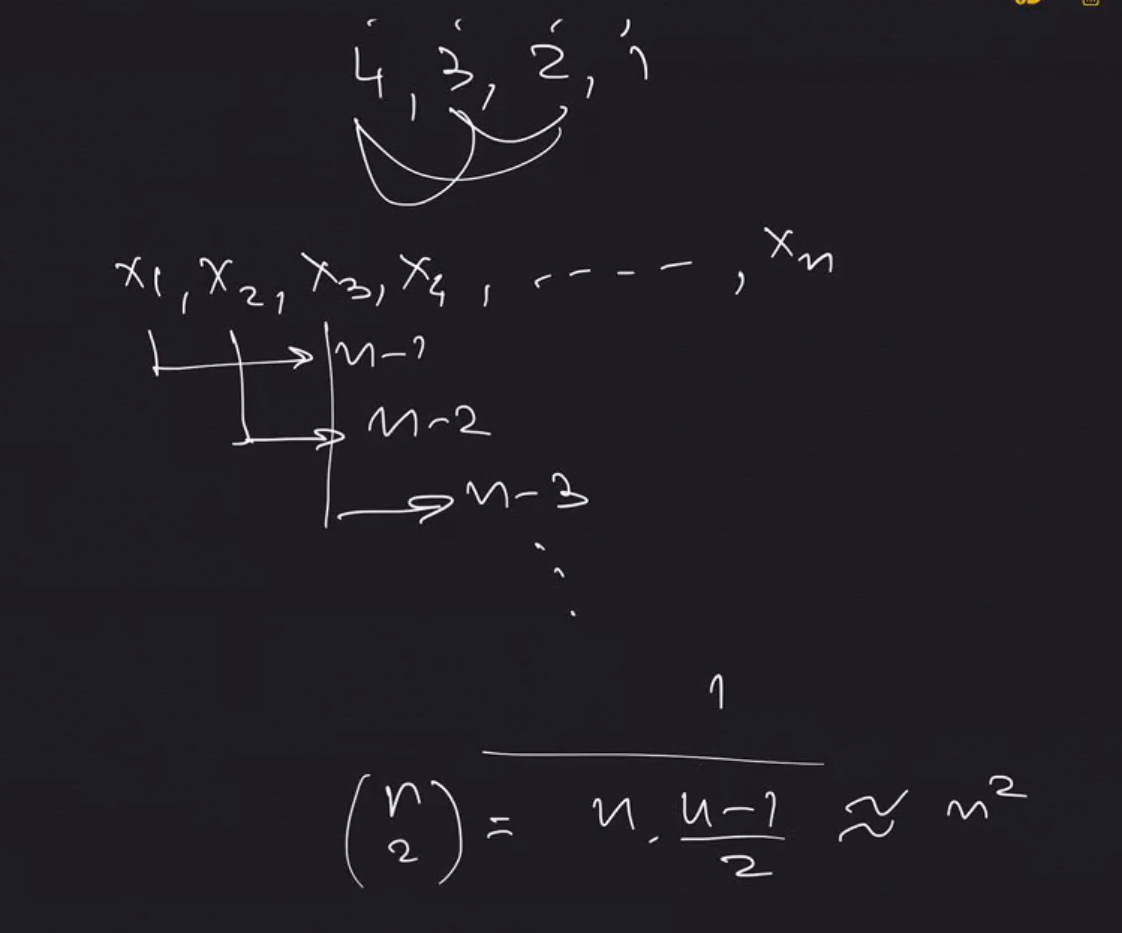 4, 3, 2, 1
x1, x2, x3, x4, ----, xn
n-1
n-2
n-3
⋱
1
(n 2) = n . n-1/2 ≈ n²